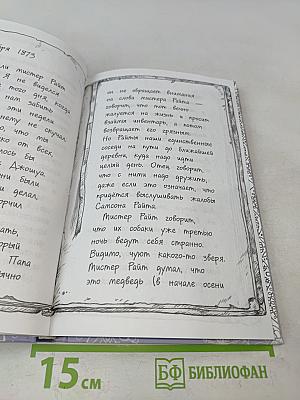 бря 1873
ли мистер Райт
Я не виделся
того дня, когда
нам забить
эти недели
нему не скучал.
но, что ты
око от всех.
лось бы
с Джошуа.
они были
и делал.
орчил
ать,
орый
Папа
ычно
он не обращает внимания
на слова мистера Райта —
говорит, что тот вечно
жалуется на жизнь и просит
взаймы инвентарь, а потом
возвращает его грязным.
Но Райты наши единственные
соседи на пути до ближайшей
деревни, куда надо идти
целый день. Отец говорит,
что с ними надо дружить,
даже если это означает, что
придётся выслушивать жалобы
Самсона Райта.
Мистер Райт говорит,
что их собаки уже третью
ночь ведут себя странно.
Видимо, чуют какого-то зверя.
Мистер Райт думал, что
это медведь (в начале осени
15 см
БФ БИБЛИОФАН